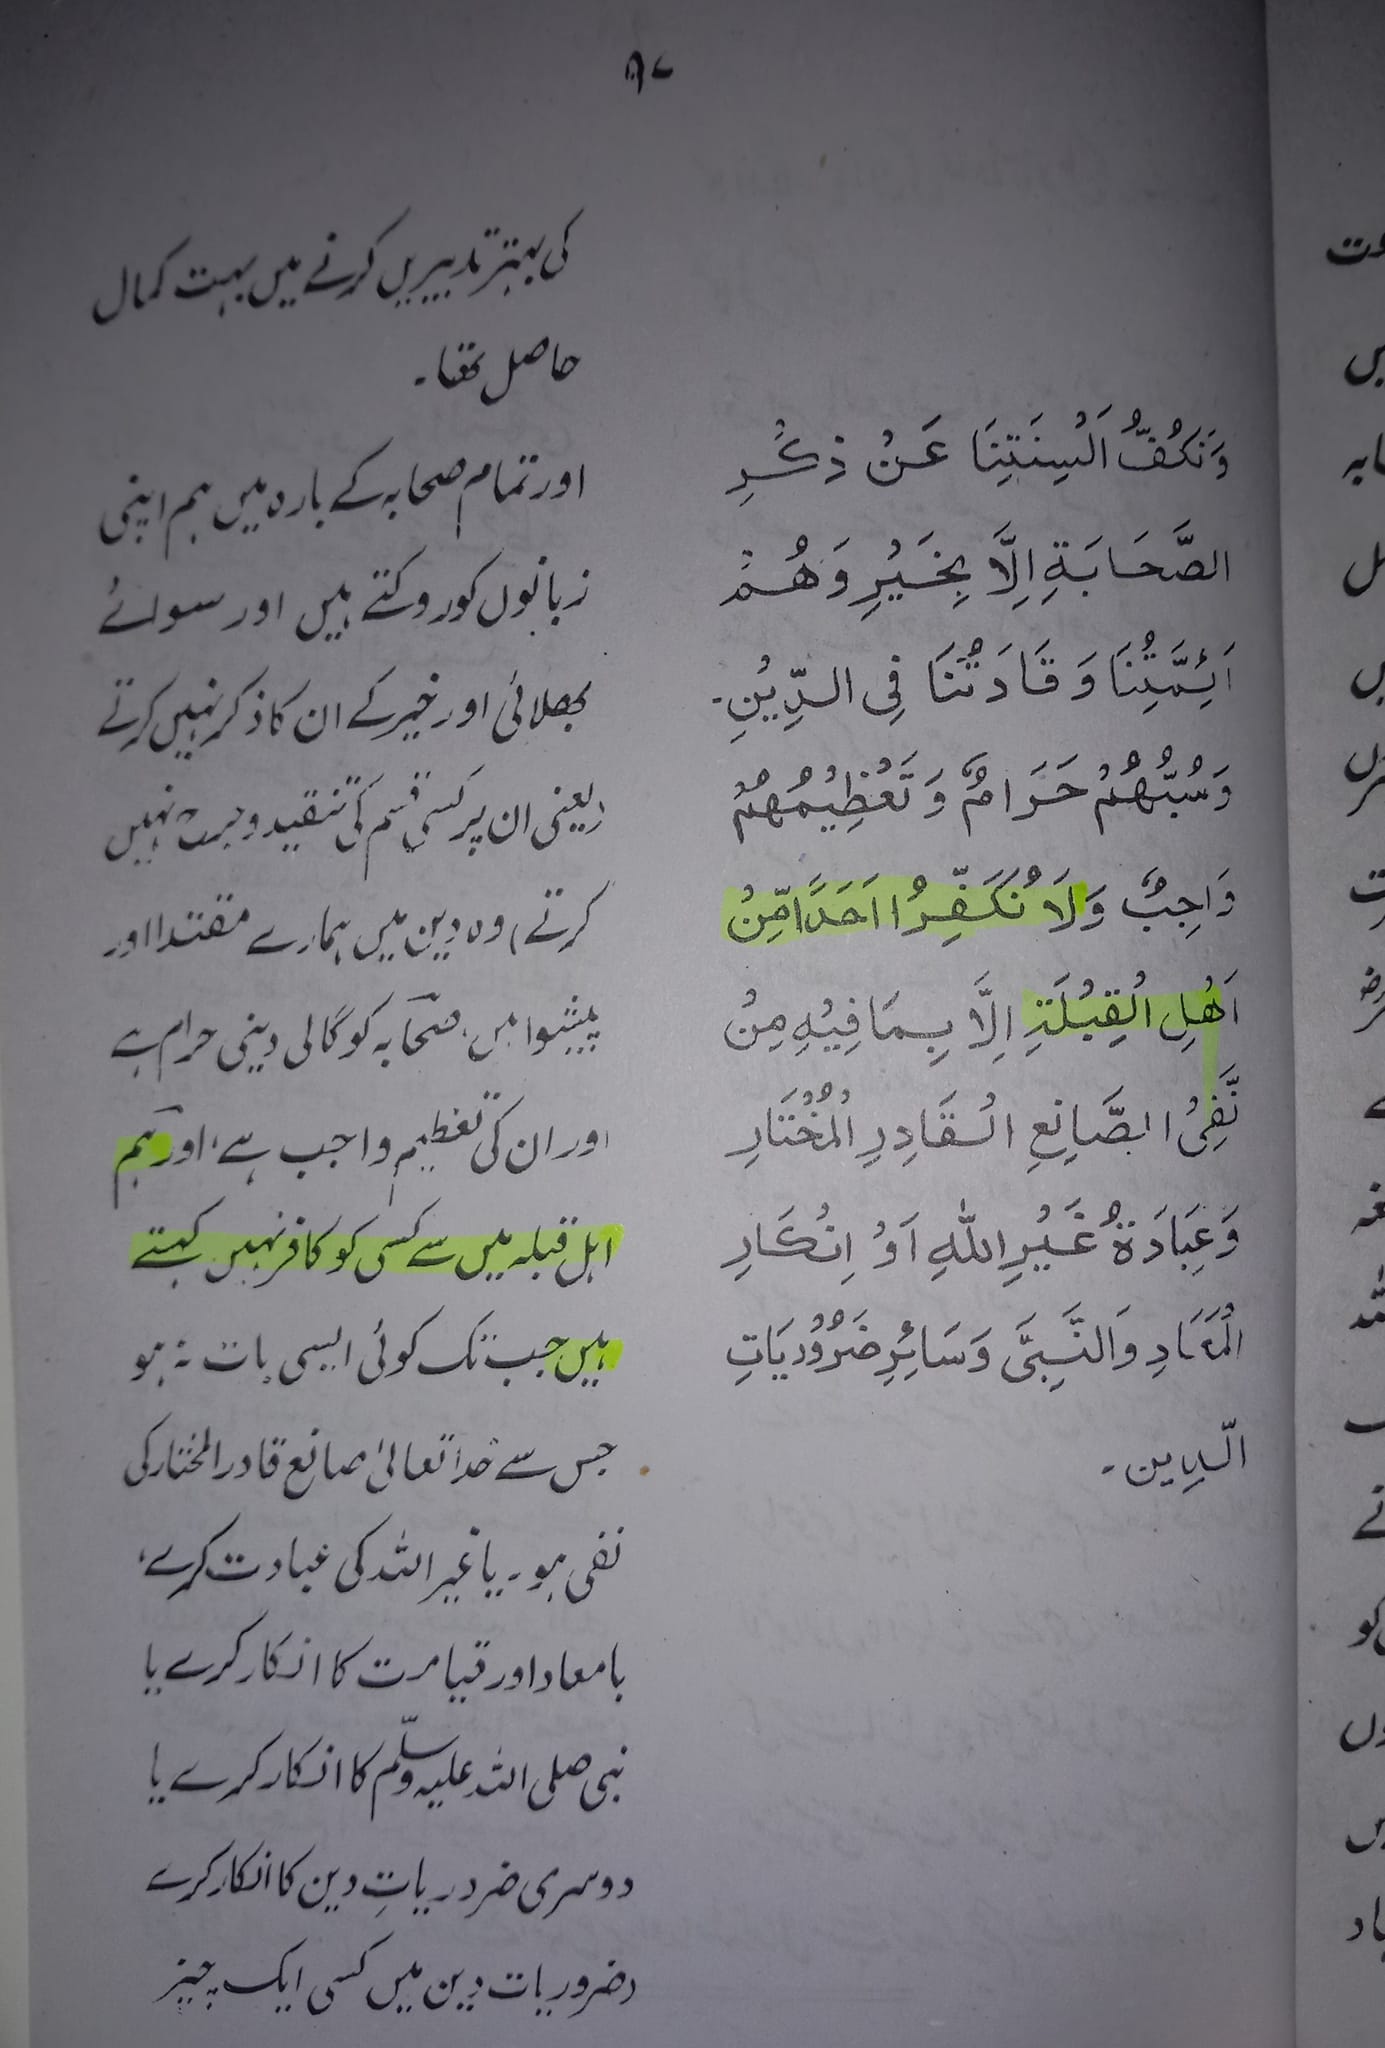 ۹۷
وَنَكُفُّ اَلْسِنَتِنَا عَنْ ذِكْرِ
الصَّحَابَةِ اِلَّا بِخَيْرٍ وَهُمْ
اَئِمَّتِنَا وَقَادَتُنَا فِى الدِّيْنِ۔
وَسُبُّهُمْ حَرَامٌ وَتَعْظِيْمُهُمْ
وَاجِبٌ وَلَا نُكَفِّرُ اَحَدًا مِّنْ
اَهْلِ الْقِبْلَةِ اِلَّا بِمَا فِيْهِ مِنْ
نَّفِىْ الصَّانِعِ الْقَادِرِ الْمُخْتَارِ
وَعِبَادَةُ غَيْرِ اللّٰهِ اَوْ اِنْكَارِ
الْمَعَادِ وَالنَّبِىَّ وَسَائِرِ ضَرُوْرِيَاتِ
الّدين۔
کی بہتر تدبیریں کرنے میں بہت کمال
حاصل تھا۔
اور تمام صحابہ کے بارہ میں ہم اپنی
زبانوں کو روکتے ہیں اور سوائے
بھلائی اور خیر کے ان کا ذکر نہیں کرتے
(یعنی ان پر کسی قسم کی تنقید وجرح نہیں
کرتے) وہ دین میں ہمارے مقتدا اور
پیشوا ہیں، صحابہ کو گالی دینی حرام ہے
اور ان کی تعظیم واجب ہے، اور ہم
اہل قبلہ میں سے کسی کو کافر نہیں کہتے
ہیں جب تک کوئی ایسی بات نہ ہو
جس سے خدا تعالیٰ صانع قادر المختار کی
نفی ہو۔ یا غیر اللہ کی عبادت کرے،
یا معاد اور قیامت کا انکار کرے یا
نبی صلی اللہ علیہ وسلّم کا انکار کرے یا
دوسری ضروریاتِ دین کا انکار کرے
(ضروریات دین میں کسی ایک چیز